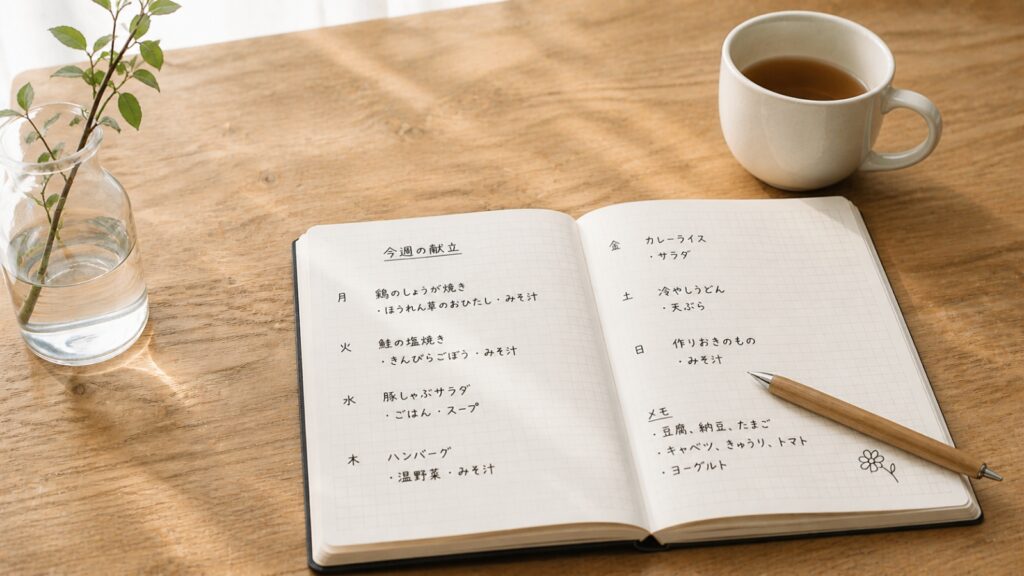 今週の献立
月 鶏のしょうが焼き
・ほうれん草のおひたし・みそ汁
火 鮭の塩焼き
・きんぴらごぼう・みそ汁
水 豚しゃぶサラダ
・ごはん・スープ
木 ハンバーグ
・温野菜・みそ汁
金 カレーライス
・サラダ
土 冷やしうどん
・天ぷら
日 作りおきのもの
・みそ汁
メモ
・豆腐、納豆、たまご
・キャベツ、きゅうり、トマト
・ヨーグルト